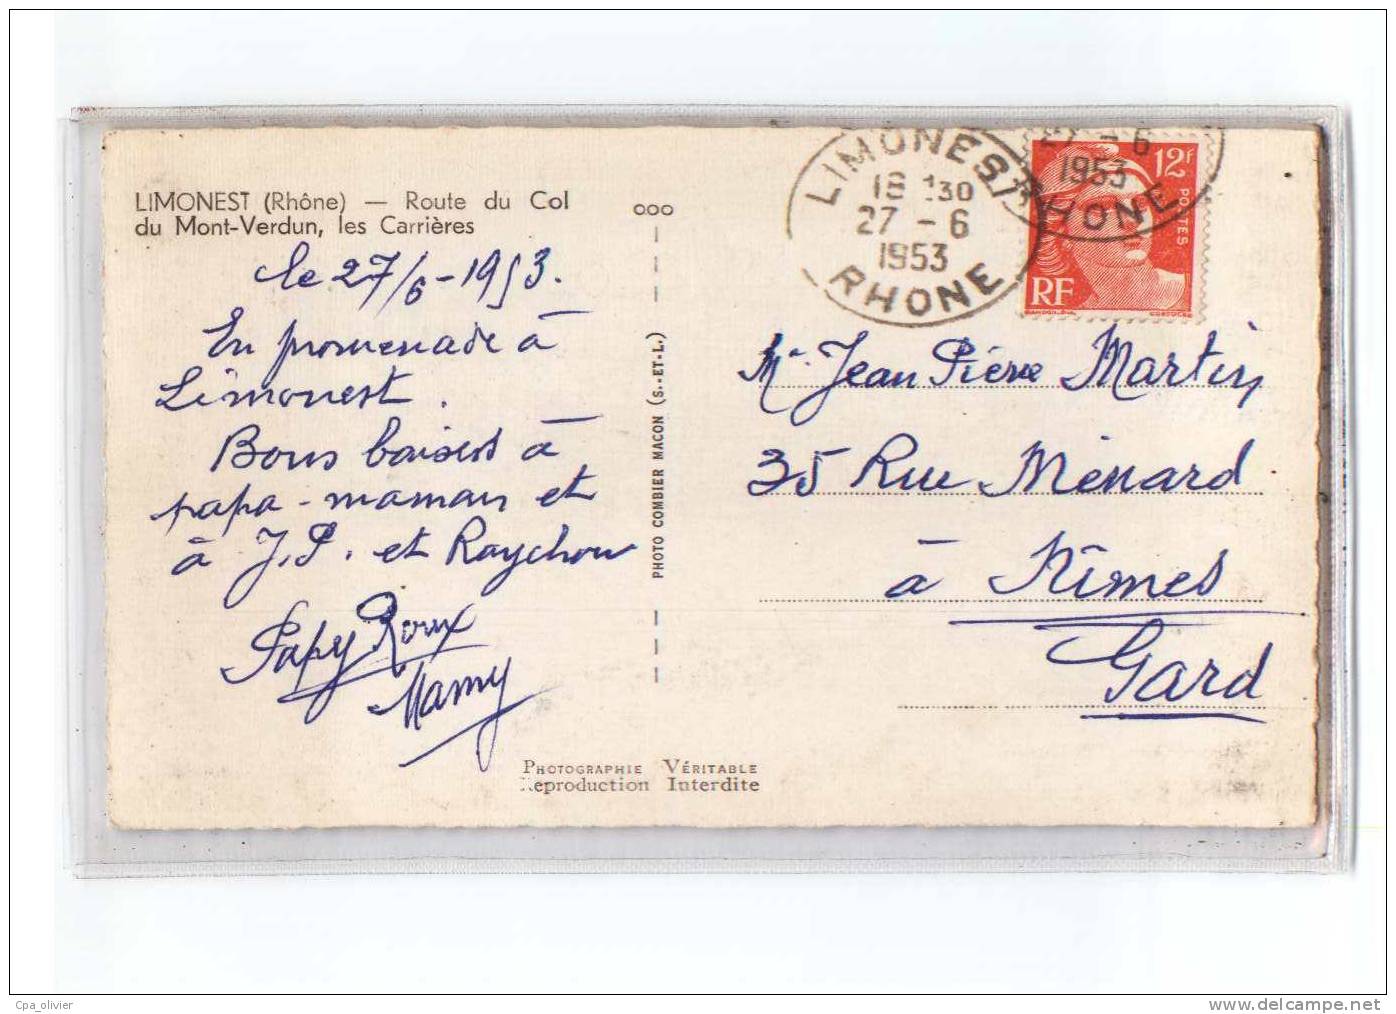 LIMONEST (Rhône) — Route du Col
du Mont-Verdun, les Carrières
le 27/6-1953.
En promenade à
Limonest.
Bons baisers à
papa - maman et
à J.P. et Raychou
Papy Roux
Mamy
PHOTO COMBIER MACON (S.-ET-L.)
PHOTOGRAPHIE VÉRITABLE
Reproduction Interdite
LIMONEST
18 30
27 - 6
1953
RHONE
27 - 6
1953
RHONE
12F
POSTES
RF
Mr Jean Pierre Martin
35 Rue Ménard
à Nîmes
Gard
Cpa_olivier
www.delcampe.com